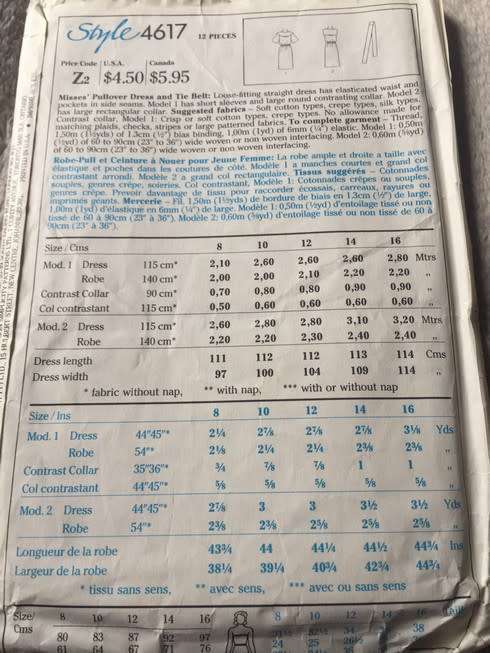 Style 4617 12 PIECES
Price Code U.S.A. Canada
Z2 $4.50 $5.95
1 2
Misses' Pullover Dress and Tie Belt: Loose-fitting straight dress has elasticated waist and
pockets in side seams. Model 1 has short sleeves and large round contrasting collar. Model 2
has large rectangular collar. Suggested fabrics – Soft cotton types, crepe types, silk types.
Contrast collar, Model 1: Crisp or soft cotton types, crepe types. No allowance made for
matching plaids, checks, stripes or large patterned fabrics. To complete garment – Thread,
1,50m (1⅝yds) of 1.3cm (½") bias binding. 1,00m (1yd) of 6mm (¼") elastic. Model 1: 0,50m
(½yd) of 60 to 90cm (23" to 36") wide woven or non woven interfacing. Model 2: 0,60m (⅝yd)
of 60 to 90cm (23" to 36") wide woven or non woven interfacing.
Robe-Pull et Ceinture à Nouer pour Jeune Femme: La robe ample et droite a taille avec
élastique et poches dans les coutures de côté. Modèle 1 a manches courtes et grand col
contrastant arrondi. Modèle 2 a grand col rectangulaire. Tissus suggérés – Cotonnades
souples, genres crêpe, soieries. Col contrastant, Modèle 1: Cotonnades crêpes ou souples,
genres crêpe. Prevoir davantage de tissu pour raccorder écossais, carreaux, rayures ou
imprimés géants. Mercerie – Fil, 1,50m de bordure de biais en 1,3cm (½") de large.
1,00m (1yd) d'élastique en 6mm (¼") de large. Modèle 1: 0,50m (½yd) d'entoilage tissé ou non
tissé de 60 à 90cm (23" à 36"). Modèle 2: 0,60m (⅝yd) d'entoilage tissé ou non tissé de 60 à
90cm (23" à 36").
Size / Cms 8 10 12 14 16
Mod. 1 Dress 115 cm* 2,10 2,60 2,60 2,60 2,80 Mtrs
Robe 140 cm* 2,00 2,00 2,10 2,20 2,20 "
Contrast Collar 90 cm* 0,70 0,80 0,80 0,90 0,90 "
Col contrastant 115 cm* 0,50 0,60 0,60 0,60 0,60 "
Mod. 2 Dress 115 cm* 2,60 2,80 2,80 3,10 3,20 Mtrs
Robe 140 cm* 2,20 2,20 2,30 2,40 2,40 "
Dress length 111 112 112 113 114 Cms
Dress width 97 100 104 109 114 "
* fabric without nap, ** with nap, *** with or without nap
Size / Ins 8 10 12 14 16
Mod. 1 Dress 44"45"* 2¼ 2⅞ 2⅞ 2⅞ 3⅛ Yds
Robe 54"* 2⅛ 2¼ 2¼ 2⅜ 2⅜ "
Contrast Collar 35"36"* ¾ ⅞ ⅞ 1 1 "
Col constrastant 44"45"* ⅝ ⅝ ⅝ ⅝ ⅝ "
Mod. 2 Dress 44"45"* 2⅞ 3 3 3½ 3½ Yds
Robe 54"* 2⅜ 2⅜ 2⅝ 2⅝ 2⅝ "
Longueur de la robe 43¾ 44 44¼ 44½ 44¾ Ins
Largeur de la robe 38¼ 39¼ 40¾ 42¾ 44¾
* tissu sans sens, ** avec sens, *** avec ou sans sens
Size/ 8 10 12 14 16 8 10 12 14
Cms 80 83 87 92 97 38
61 64 67 71 76 24 25